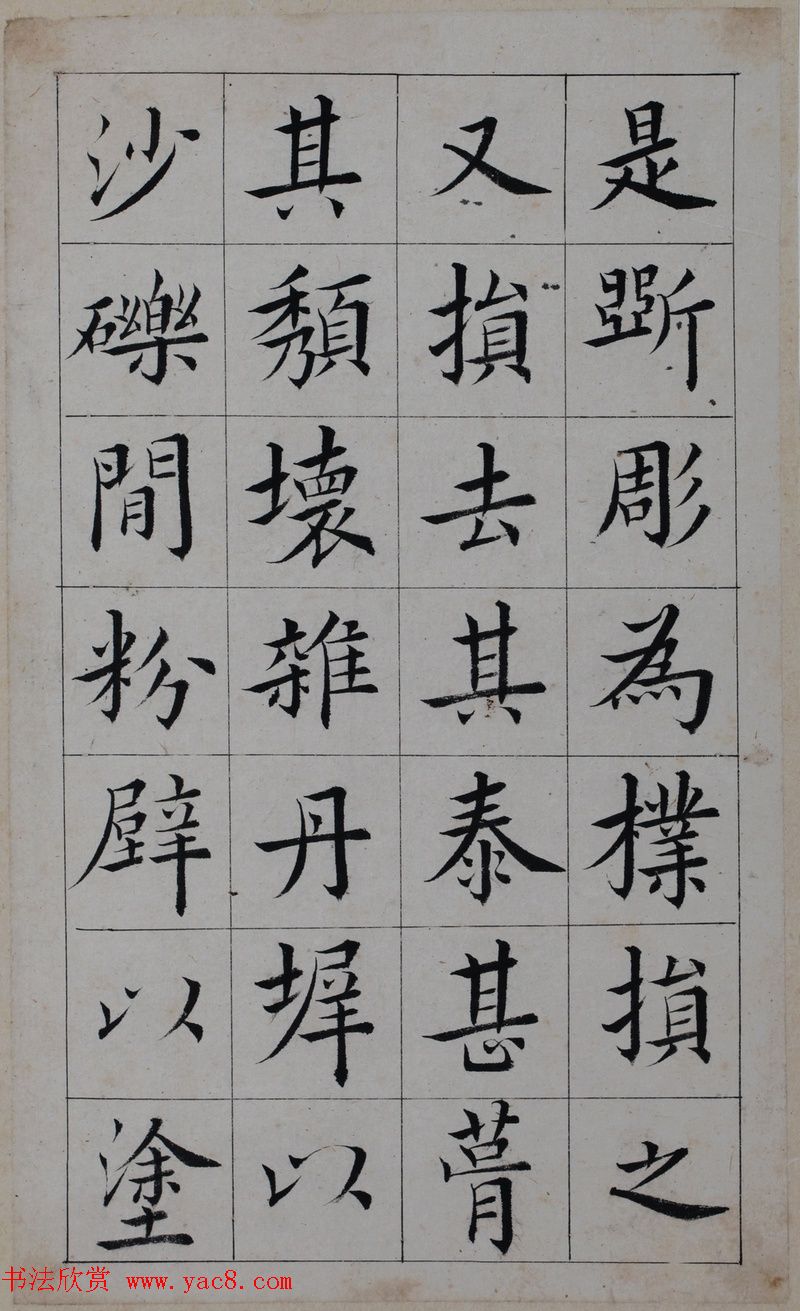 是斲彫為樸損之
又損去其泰甚葺
其頽壞雜丹墀以
沙礫閒粉壁以塗
书法欣赏 www.yac8.com